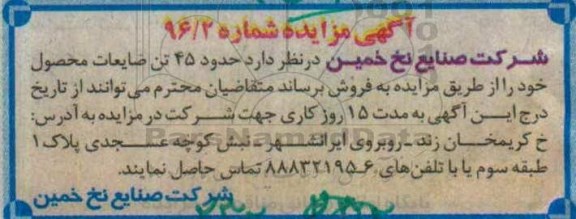 آگهی مزایده شماره ۹۶/۲
شرکت صنایع نخ خمین درنظر دارد حدود ۴۵ تن ضایعات محصول
خود را از طریق مزایده به فروش برساند متقاضیان محترم می‌توانند از تاریخ
درج این آگهی به مدت ۱۵ روز کاری جهت شرکت در مزایده به آدرس:
خ کریمخان زند-روبروی ایرانشهر-نبش کوچه عسجدی پلاک۱
طبقه سوم یا با تلفن‌های ۶-۸۸۸۳۲۱۹۵ تماس حاصل نمایند.
شرکت صنایع نخ خمین